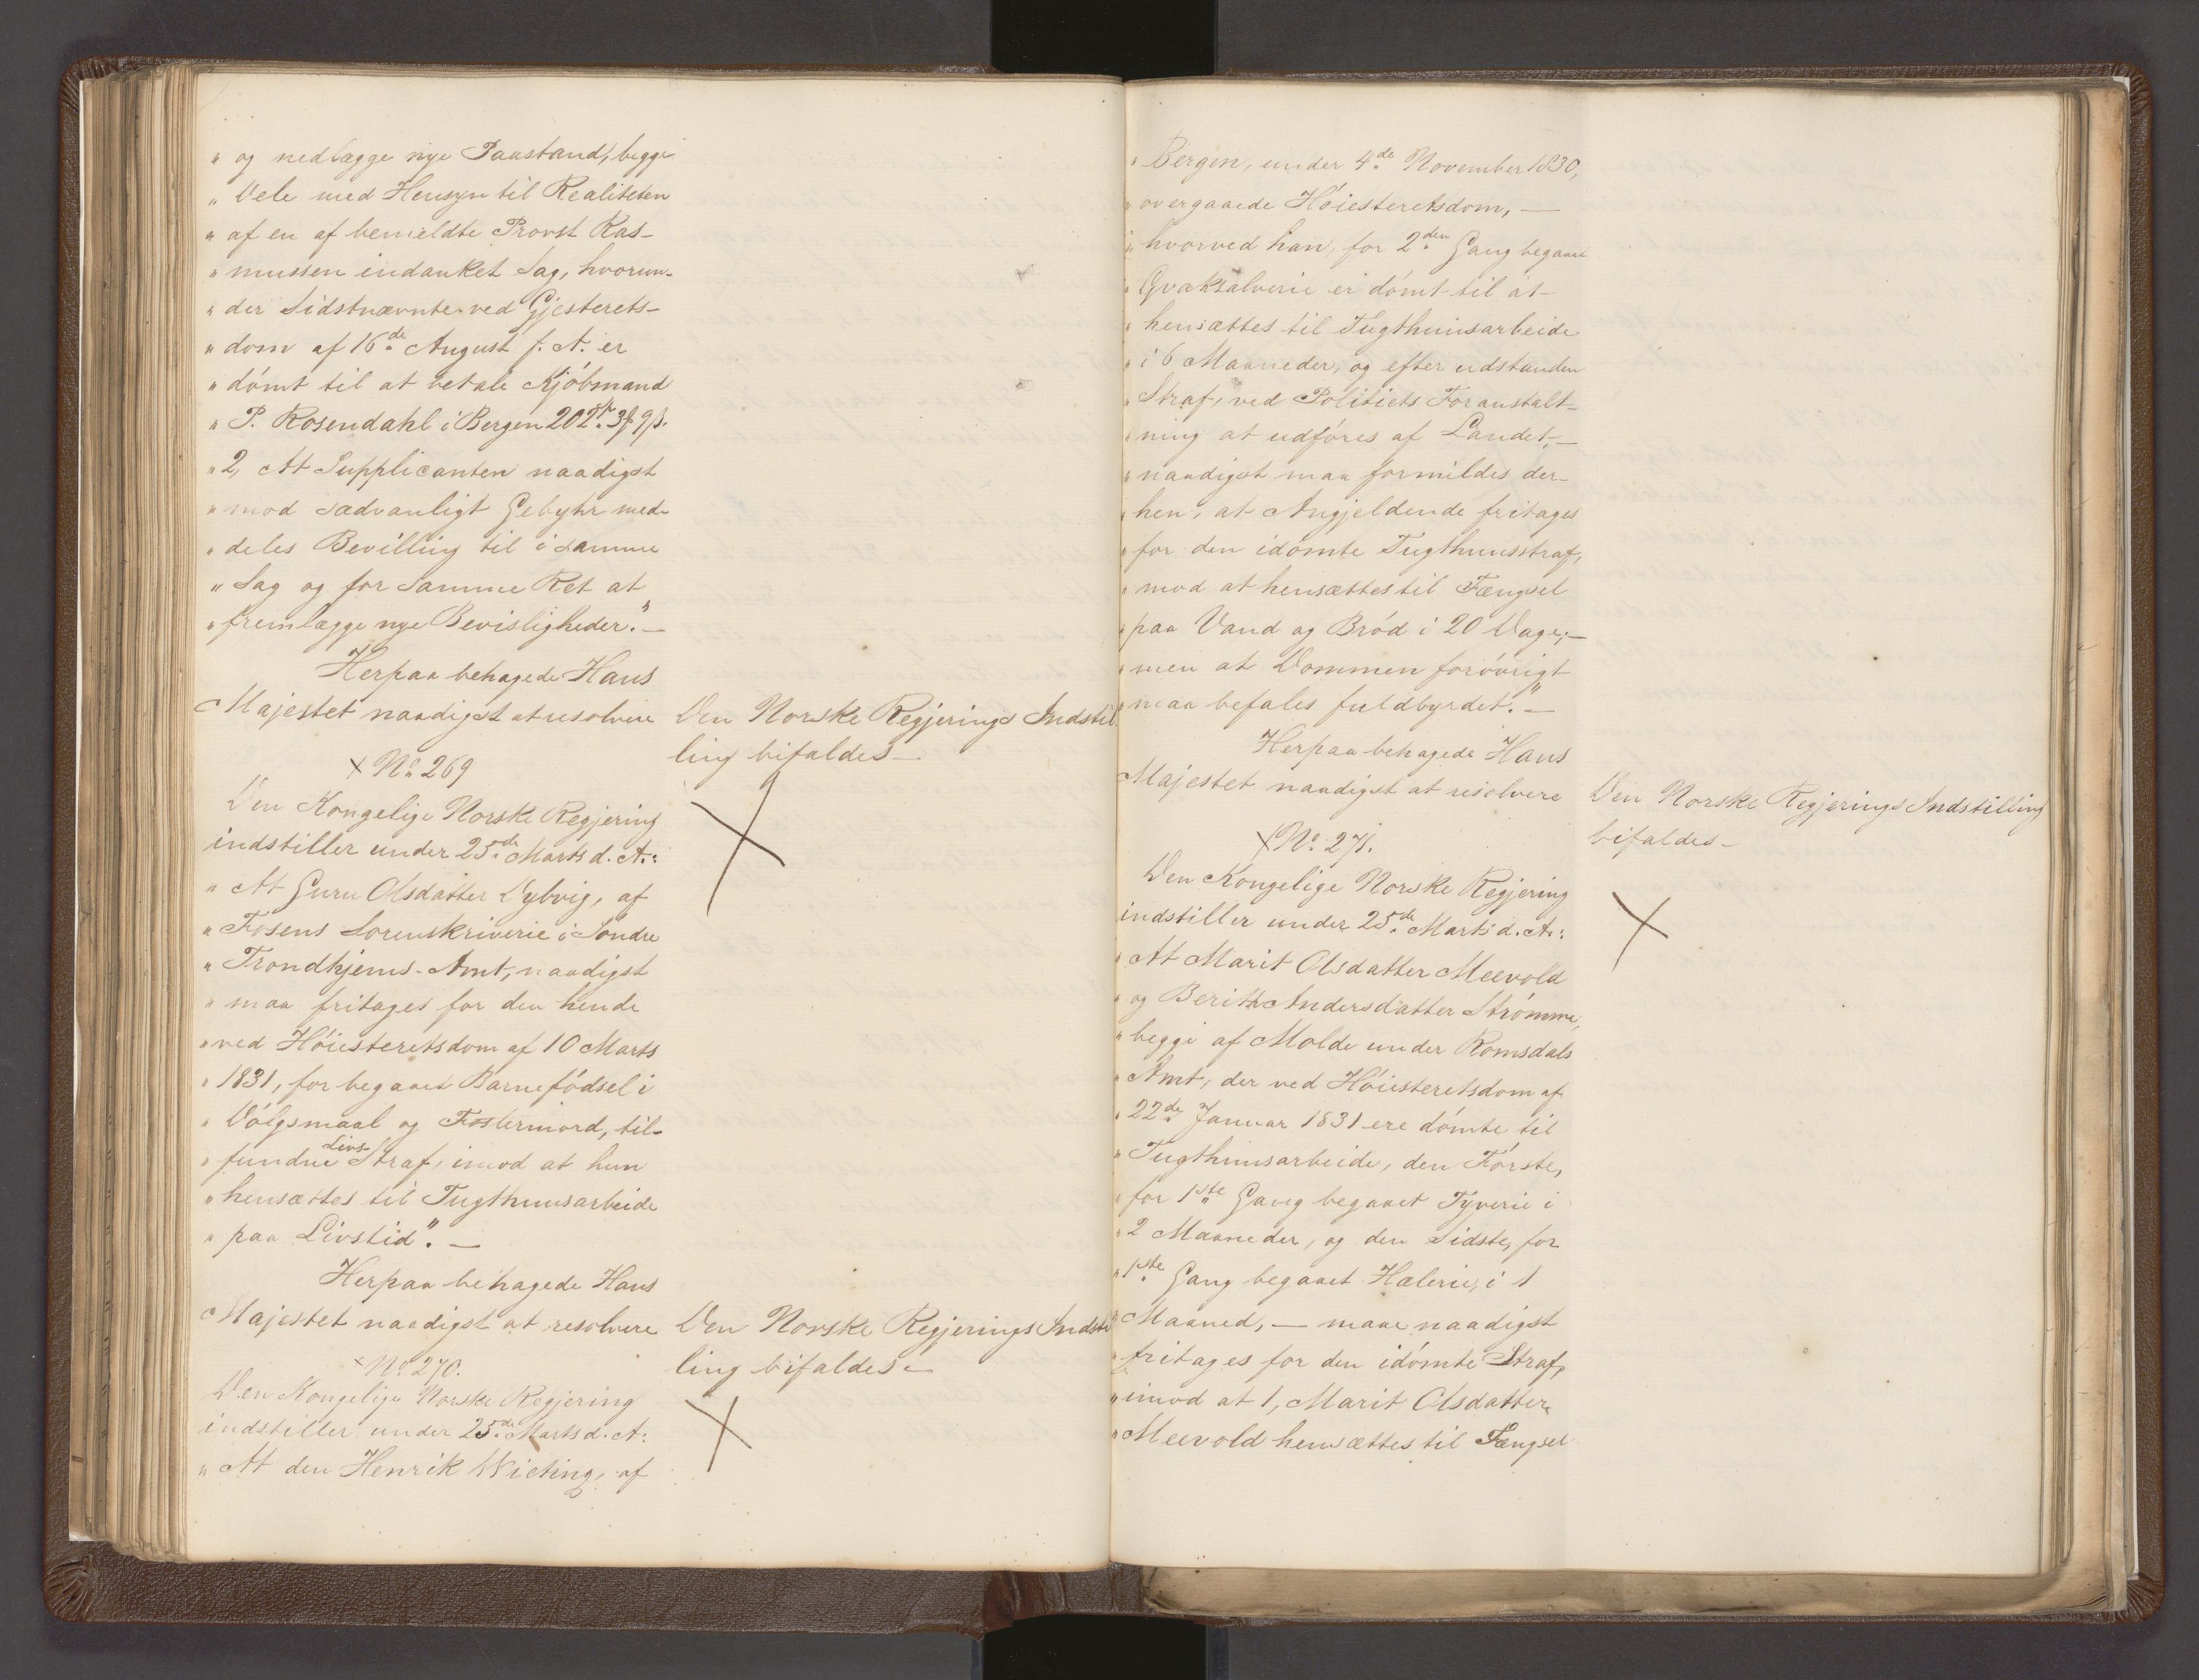 " og nedlægge nye Paastand, begge
" Dele med Hensyn til Realiteten
" af en af bemeldte Provst Ras-
" mussen indanket Sag, hvorun-
" der Sidstnævnte ved Gjesterets-
" dom af 16de August f. A. er
" dömt til at betale Kjöbmand
" P. Rosendahl i Bergen
" 2, At Supplicanten naadigst
" mod sædvanligt Gebyhr med-
" deles Bevilling til i samme
" Sag og for samme Ret at
" fremlægge nye Bevisligheder." —
Herpaa behagede Hans
Majestet naadigst at resolvere
Den Norske Regjerings Indstil
ling bifaldes —
+ No. 269
Den Kongelige Norske Regjering
indstiller under 25de Marts d. A.:
" At Guru Olsdatter Dybvig, af
" Fosens Sorenskriverie i Söndre
" Trondhjems-Amt, naadigst
" maa fritages for den hende
" ved Höiesteretsdom af 10 Marts
" 1831, for begaaet Barnefödsel i
" Dölgsmaal og Fostermord, til-
" fundne Livs-Straf, imod at hun
" hensættes til Tugthuusarbeide
" paa Livstid". —
Herpaa behagede Hans
Majestet naadigst at resolvere
Den Norske Regjerings Indstil
ling bifaldes —
+ No. 270.
Den Kongelige Norske Regjering
indstiller under 25de Marts d. A:
" At den Henrik Wieting, af
" Bergen, under 4de November 1830,
" overgaaede Höiesteretsdom, —
" hvorved han, for 2den Gang begaaet
" Qvaksalverie er dömt til at
" hensættes til Tugthuusarbeide
" i 6 Maaneder, og efter udstanden
" Straf, ved Politiets Foranstalt-
" ning at udföres af Landet, —
" naadigst maa formildes der-
" hen, at Angjeldende fritages
" for den idömte Tugthuusstraf,
" mod at hensættes til Fængsel
" paa Vand og Bröd i 20 Dage; —
" men at Dommen forövrigt
" maa befales fuldbyrdet". —
Herpaa behagede Hans
Majestet naadigst at resolvere
Den Norske Regjerings Indstilling
bifaldes —
+ No. 271.
Den Kongelige Norske Regjering
indstiller under 25de Marts d. A.:
" At Marit Olsdatter Meevold
" og Berith Andersdatter Strömme,
" begge af Molde under Romsdals
" Amt, der ved Höiesteretsdom af
" 22de Januar 1831 ere dömte til
" Tugthuusarbeide, den Förste,
" for 1ste Gang begaaet Tyverie i
" 2 Maaneder, og den Sidste, for
" 1ste Gang begaaet Hælerie, i 1
" Maaned, — maae naadigst
" fritages for den idömte Straf,
" imod at 1, Marit Olsdatter
" Meevold hensættes til Fængsel